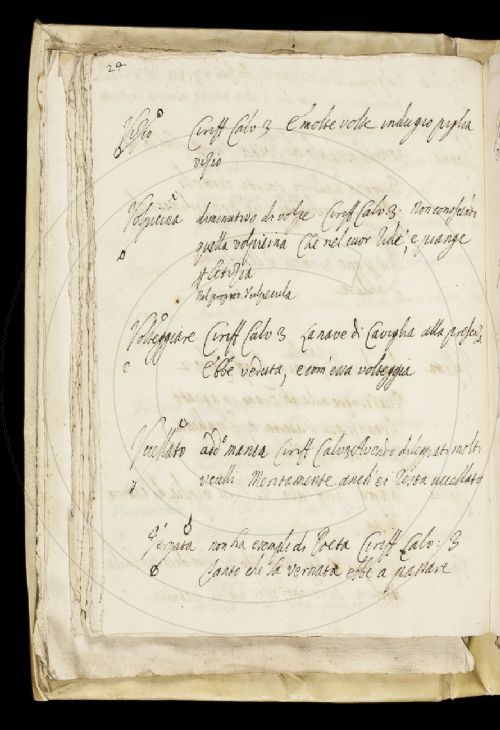 24
Vizio Ciriff Calv 3 E molte volte indugio piglia
vizio
Volpicina diminutivo di volpe Ciriff Calv 3. Non conoscendo
quella volpicina Che nel cuor ride, e piange
p letizia
Nel propron. Vulpecula
Volteggiare Ciriff Calv 3 La nave di Caviglia alla presenza
Ebbe veduta, e com' essa volteggia
Uccellato add manca Ciriff Calv 3 Avendo dileggiati molti
uccelli Meritamente anch' ei resta uccellato
Vernata non ha esempio di Poeta Ciriff Calv: 3
Tanto che la vernata ebbe a passare